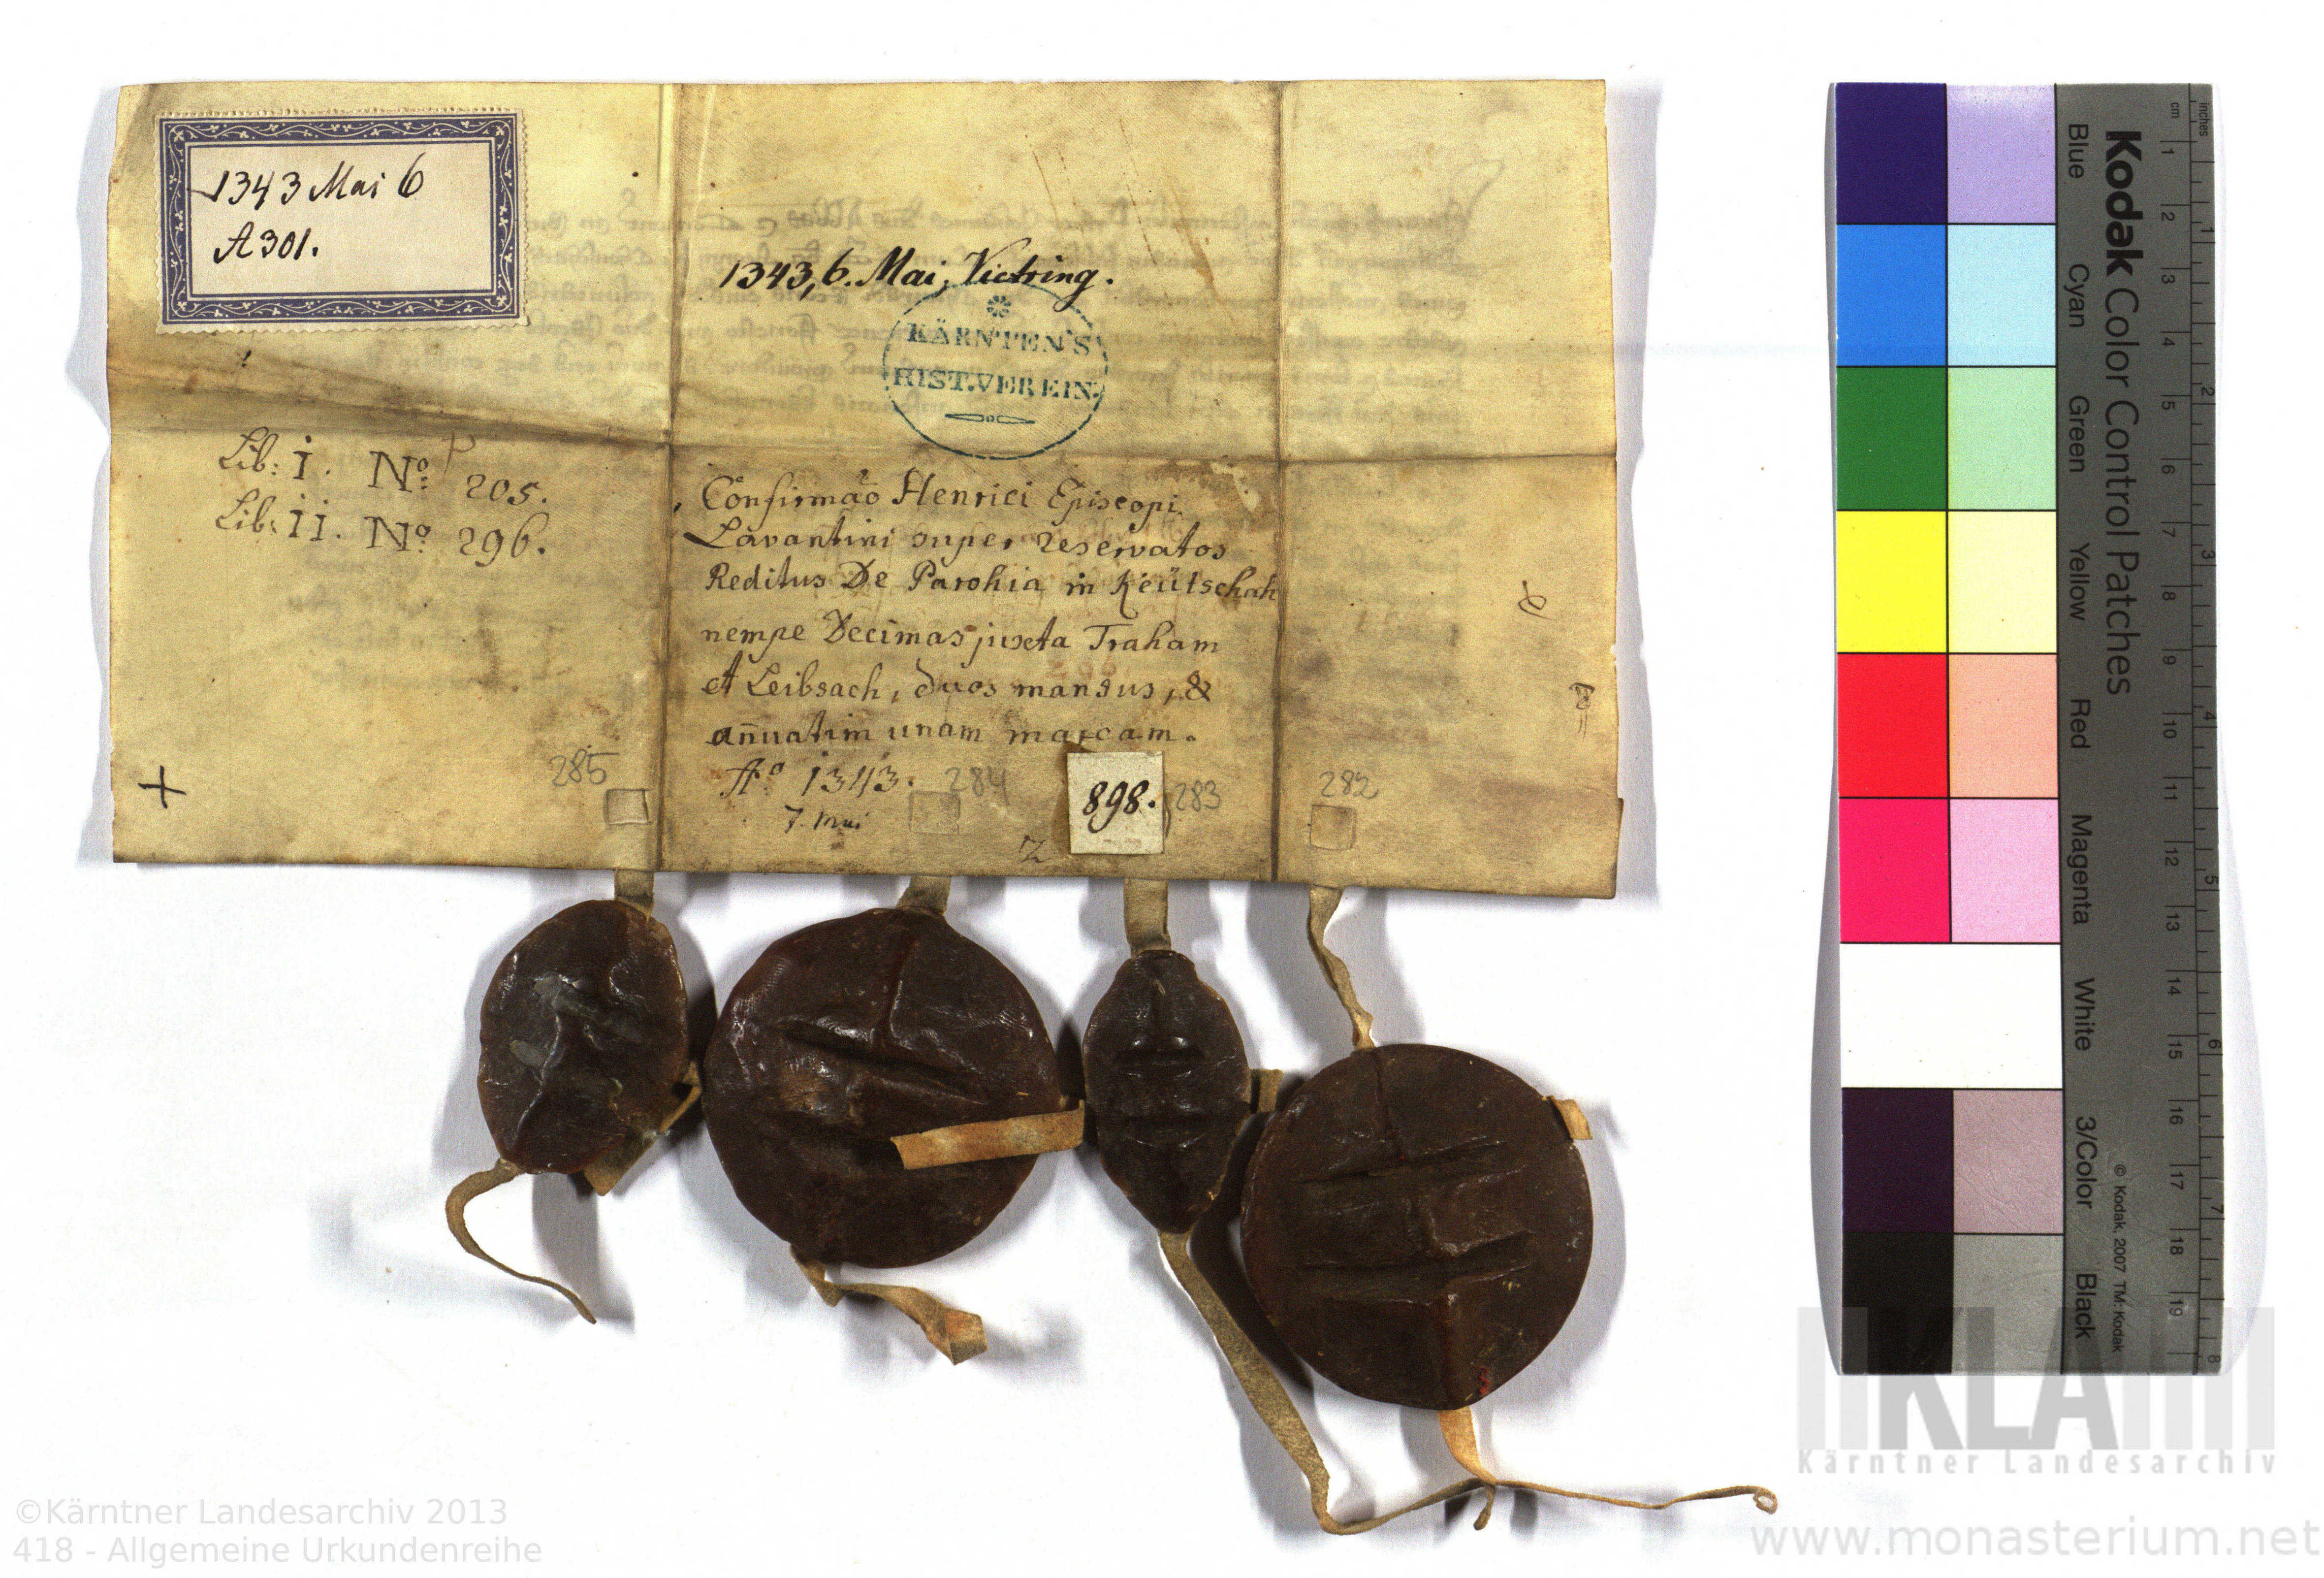 1343 Mai 6
A 301.
1343, 6. Mai, Victring.
KÄRNTEN'S
HIST. VEREIN.
Lib: I. No: 205.
Lib: II. No: 296.
Confirmão Henrici Episcopi
Lavantini super reservatos
Reditus De Parohia in Keütschah
nempe Decimas juxta Traham
et Leibsach, duos mansus, &
anuatim unam marcam.
Ao 1343.
7. Mai
285
284
898.
283
282
Kodak Color Control Patches
Blue
Cyan
Green
Yellow
Red
Magenta
White
3/Color
Black
© Kodak, 2007 TM: Kodak
cm 1 2 3 4 5 6 7 8 9 10 11 12 13 14 15 16 17 18 19
inches 1 2 3 4 5 6 7 8
KLA
Kärntner Landesarchiv
©Kärntner Landesarchiv 2013
418 - Allgemeine Urkundenreihe
www.monasterium.net